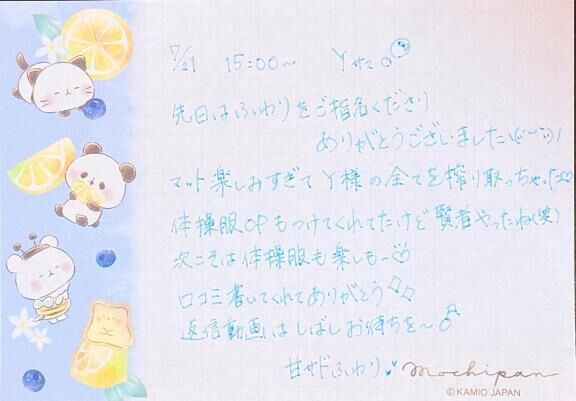 7/21 15:00～ Yサマ
先日はふわりをご指名くださり
ありがとうございました\(^-^)/
マット楽しみすぎてY様の全てを搾り取っちゃった♡
体操服OPもつけてくれてたけど賢者やったね(笑)
次こそは体操服も楽しもー♡
口コミ書いてくれてありがとう
返信動画はしばしお待ちを～
甘サドふわり
mochipan
©KAMIO JAPAN